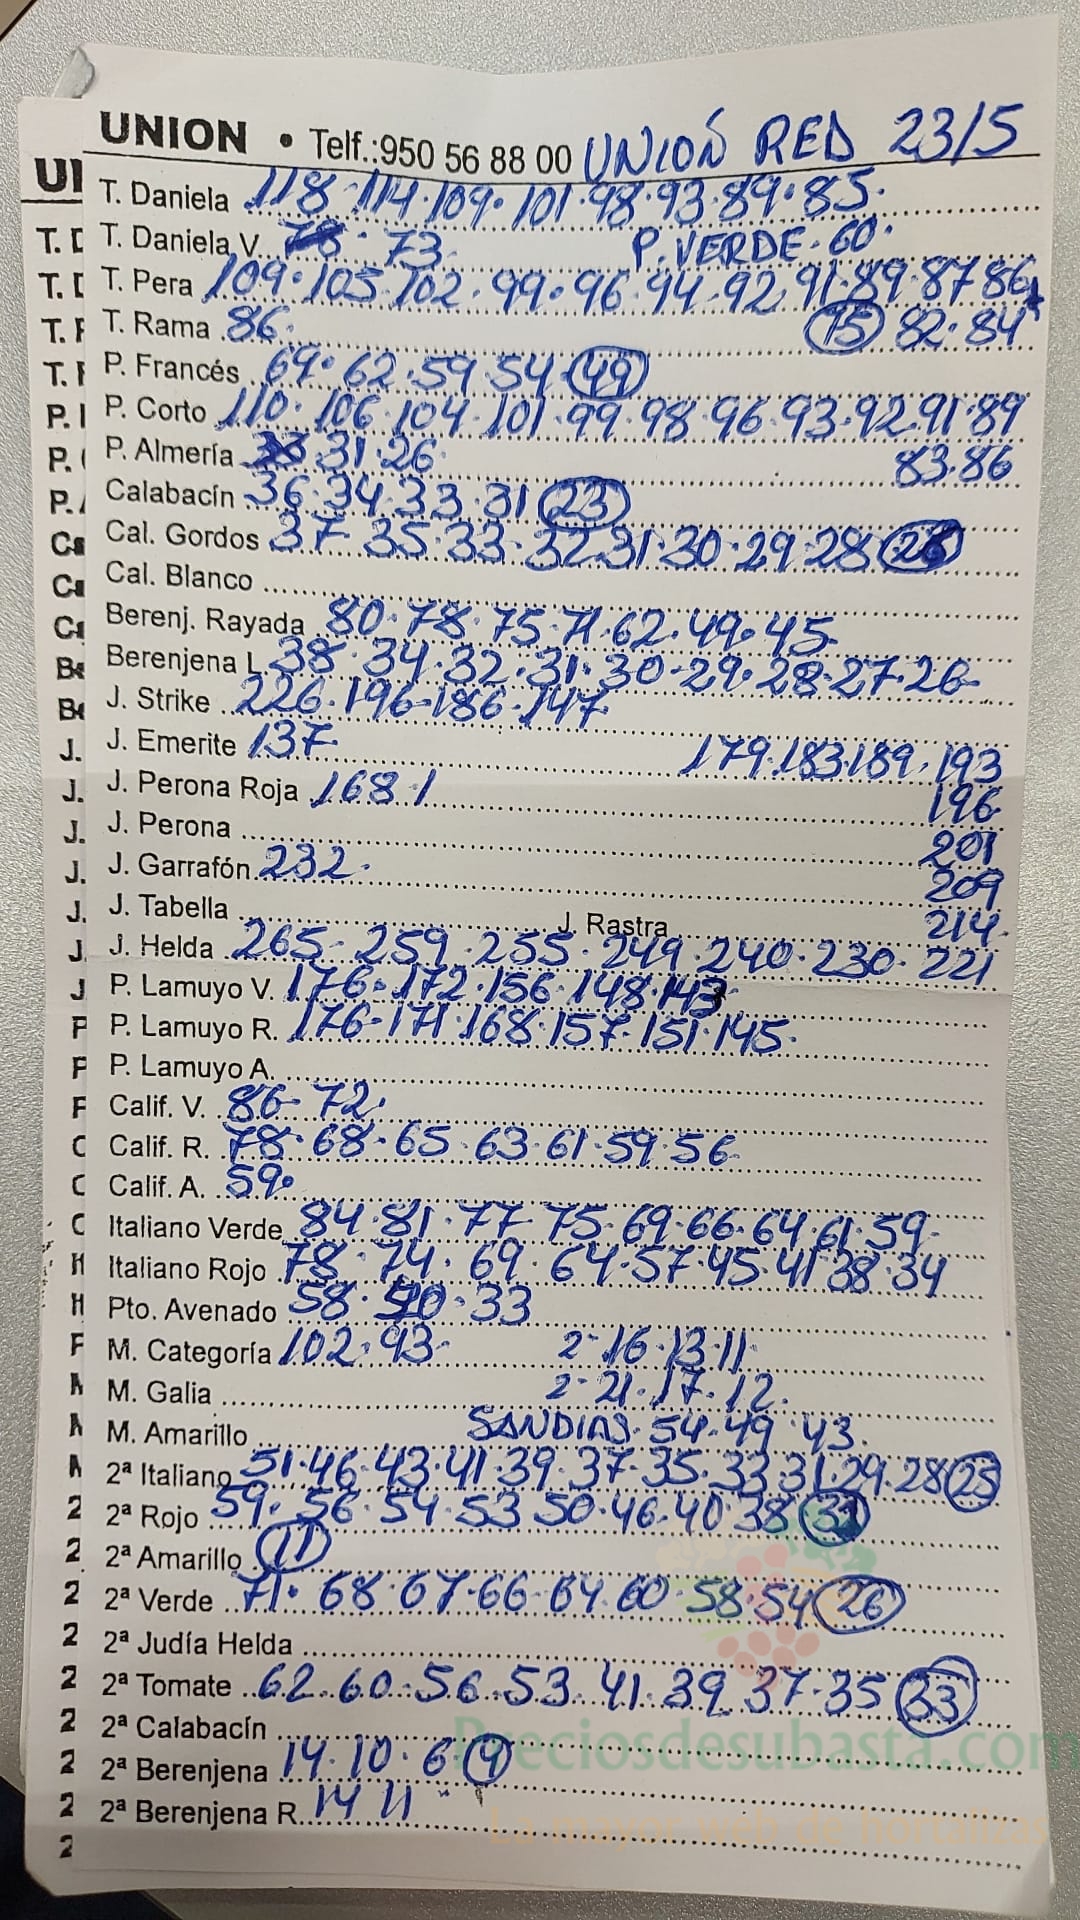 UNION • Telf.:950 56 88 00 UNIÓN RED 23/5
T. Daniela 118. 114. 109. 101. 98. 93. 89. 85.
T. Daniela V. 73. P. VERDE. 60.
T. Pera 109. 105. 102. 99. 96. 94. 92. 91. 89. 87 86
T. Rama 86. (75) 82. 84
P. Francés 69. 62. 59. 54 (49)
P. Corto 110. 106. 104. 101. 99. 98. 96. 93. 92. 91. 89
83. 86
P. Almería 31. 26.
Calabacín 36. 34. 33. 31 (23)
Cal. Gordos 37. 35. 33. 32. 31. 30. 29. 28
Cal. Blanco
Berenj. Rayada 80. 78. 75. 71. 62. 49. 45.
Berenjena L 38. 34. 32. 31. 30. 29. 28. 27. 26
J. Strike 226. 196. 186. 147
J. Emerite 137. 179. 183. 189. 193
J. Perona Roja 168. 196
J. Perona 201
J. Garrafón 232. 209
J. Tabella J. Rastra 214.
J. Helda 265. 259. 255. 249. 240. 230. 221
P. Lamuyo V. 176. 172. 156. 148. 143
P. Lamuyo R. 176. 171. 168. 157. 151. 145.
P. Lamuyo A.
Calif. V. 86. 72.
Calif. R. 78. 68. 65. 63. 61. 59. 56
Calif. A. 59.
Italiano Verde 84. 81. 77. 75. 69. 66. 64. 61. 59.
Italiano Rojo 78. 74. 69. 64. 57. 45. 41. 38. 34
Pto. Avenado 58. 33
M. Categoría 102. 93. 2ª 16. 13. 11.
M. Galia 2ª 21. 17. 12.
M. Amarillo SANDIAS. 54. 49. 43.
2ª Italiano 51. 46. 43. 41. 39. 37. 35. 33. 31. 29. 28 (25)
2ª Rojo 59. 56. 54. 53 50. 46. 40 38
2ª Amarillo (11)
2ª Verde 71. 68. 67. 66. 64. 60. 58. 54 (26)
2ª Judía Helda
2ª Tomate 62. 60. 56. 53. 41. 39. 37. 35 (33)
2ª Calabacín
2ª Berenjena 14. 10. 6
2ª Berenjena R. 14 11
Preciosdesubasta.com
La mayor web de hortalizas